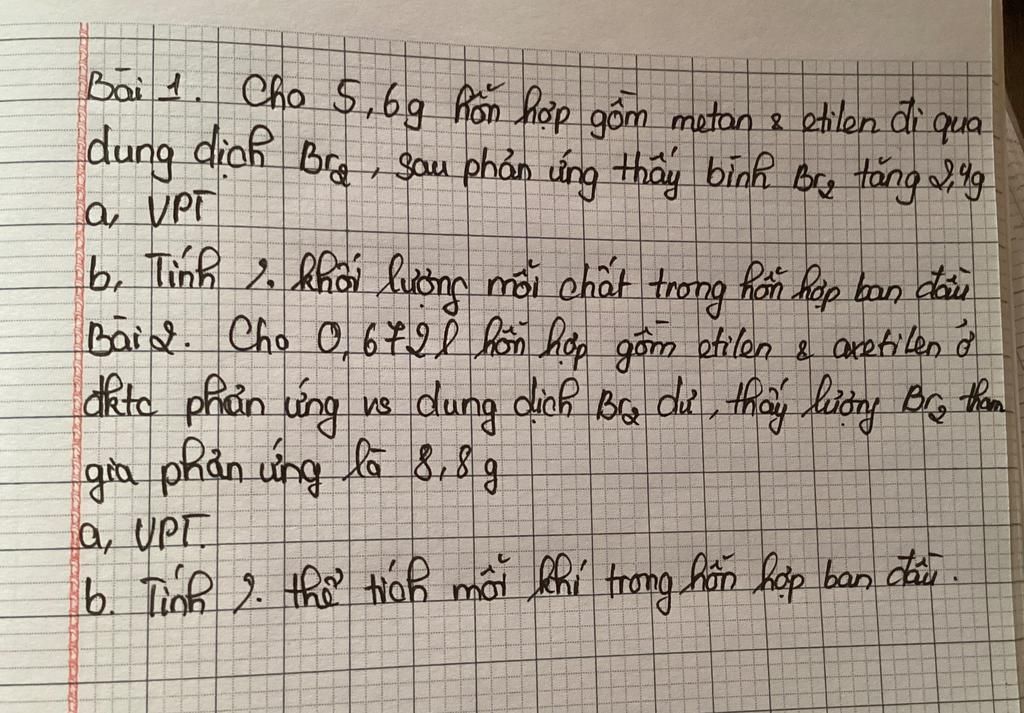 Bài 1. Cho 5,6g hỗn hợp gồm metan & etilen đi qua
dung dịch Br2, sau phản ứng thấy bình Br2 tăng 2,4g
a, VPT
b, Tính %. khối lượng mỗi chất trong hỗn hợp ban đầu
Bài 2. Cho 0,672l hỗn hợp gồm etilen & axetilen ở
đktc phản ứng vs dung dịch Br2 dư, thấy lượng Br2 tham
gia phản ứng là 8,8g
a, VPT.
b. Tính %. thể tích mỗi khí trong hỗn hợp ban đầu.